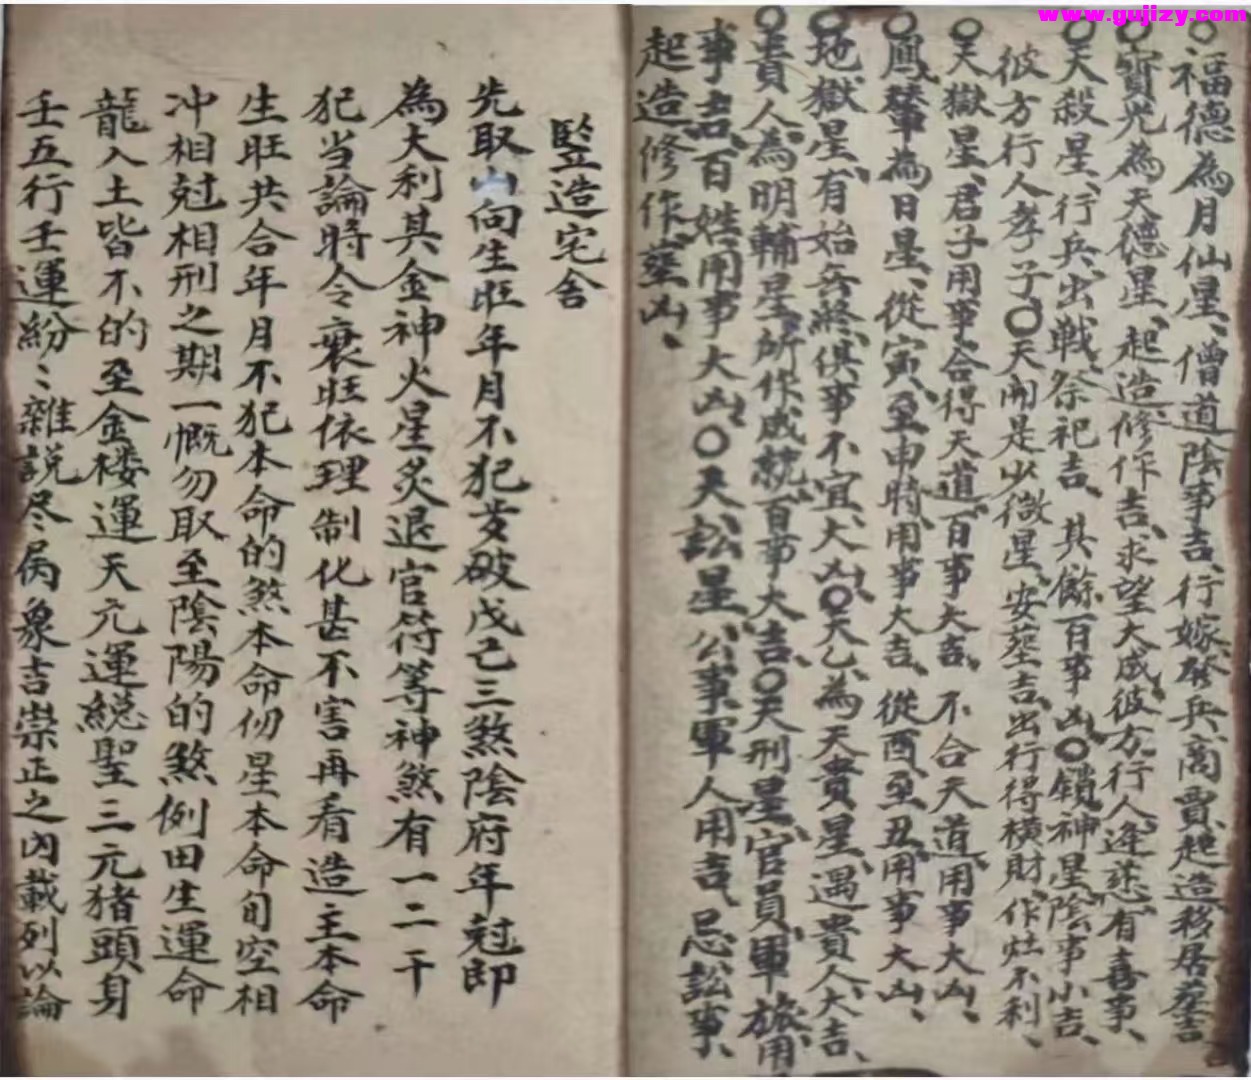 www.gujizy.com
○福德為月仙星、僧道陰事吉、行嫁發兵、商賈、起造移居塟吉
○寶光為天德星、起造修作吉、求望大成彼方、行人逢慈、有喜事、
○天殺星、行兵出戰、祭祀吉、其餘百事凶、○鎖神星、陰事小吉、
彼方行人孝子、○天開是少微星、安塟吉、出行得橫財、作灶不利、
○天獄星、君子用事、合得天道、百事大吉、不合天道、用事大凶、
○鳳輦為日星、從寅至申時、用事大吉、從酉至丑、用事大凶、
○地獄星、有始無終、俱事不宜、大凶、○天乙為天貴星、遇貴人大吉、
○貴人、為明輔星、所作成就、百事大吉、○天刑星、官員、軍旅、用
事吉、百姓用事大凶、○天訟星、公事、軍人用吉、忌訟事、
起造修作、塟凶、
監造宅舍
先取山向生旺年月不犯歲破戊己三煞陰府年尅即
為大利其金神火星炙退官符等神煞有一二干
犯当論時令衰旺依理制化甚不害再看造主本命
生旺共合年月不犯本命的煞本命仞星本命旬空相
冲相尅相刑之期一慨勿取至陰陽的煞例田生運命
龍入土皆不的至金楼運天元運總聖三元猪頭身
壬五行壬運紛〻雜說尽〻属象吉崇正之內載列以論